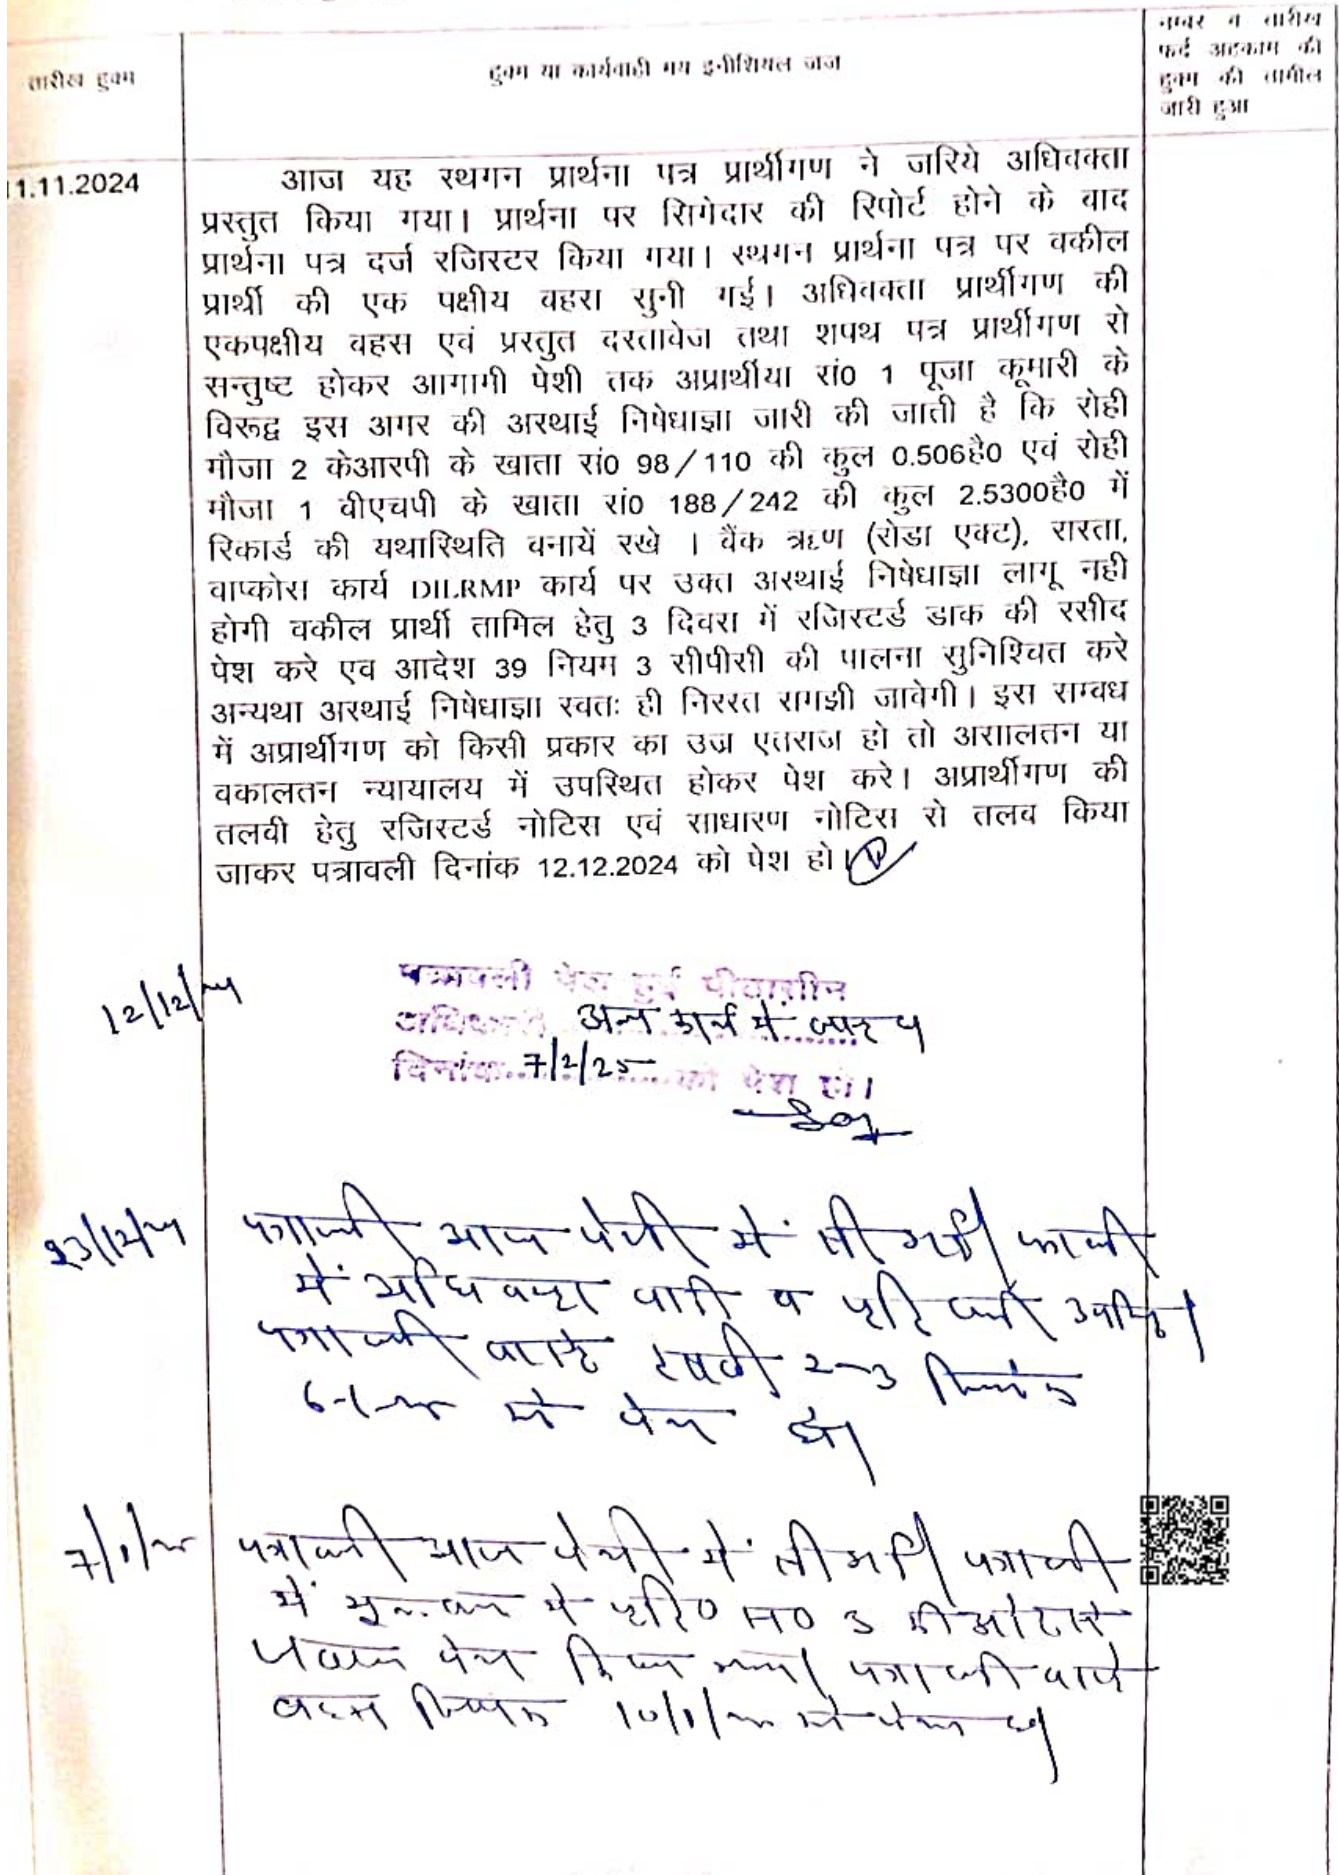 तारीख हुक्म
हुक्म या कार्यवाही मय इनीशियल जज
नम्बर व तारीख
फर्द अहकाम की
हुक्म की तामील
जारी हुआ
11.11.2024
आज यह स्थगन प्रार्थना पत्र प्रार्थीगण ने जरिये अधिवक्ता
प्रस्तुत किया गया। प्रार्थना पर सिगेदार की रिपोर्ट होने के बाद
प्रार्थना पत्र दर्ज रजिस्टर किया गया। स्थगन प्रार्थना पत्र पर वकील
प्रार्थी की एक पक्षीय बहस सुनी गई। अधिवक्ता प्रार्थीगण की
एकपक्षीय बहस एवं प्रस्तुत दस्तावेज तथा शपथ पत्र प्रार्थीगण से
सन्तुष्ट होकर आगामी पेशी तक अप्रार्थीया सं0 1 पूजा कूमारी के
विरूद्व इस अमर की अस्थाई निषेधाज्ञा जारी की जाती है कि रोही
मौजा 2 केआरपी के खाता सं0 98/110 की कुल 0.506है0 एवं रोही
मौजा 1 बीएचपी के खाता सं0 188/242 की कुल 2.5300है0 में
रिकार्ड की यथास्थिति बनायें रखे । बैंक ऋण (रोडा एक्ट), रास्ता,
वाप्कोस कार्य DILRMP कार्य पर उक्त अस्थाई निषेधाज्ञा लागू नही
होगी वकील प्रार्थी तामिल हेतु 3 दिवस में रजिस्टर्ड डाक की रसीद
पेश करे एव आदेश 39 नियम 3 सीपीसी की पालना सुनिश्चित करे
अन्यथा अस्थाई निषेधाज्ञा स्वतः ही निरस्त समझी जावेगी। इस सम्बध
में अप्रार्थीगण को किसी प्रकार का उज्र एतराज हो तो असालतन या
वकालतन न्यायालय में उपस्थित होकर पेश करे। अप्रार्थीगण की
तलबी हेतु रजिस्टर्ड नोटिस एवं साधारण नोटिस से तलब किया
जाकर पत्रावली दिनांक 12.12.2024 को पेश हो।
12/12/24
पत्रावली पेश हुई पीठासीन
अधिकारी अन्य कार्य में व्यस्त
दिनांक 7/2/25 को पेश हो।
23/12/24 पत्रावली आज पेशी में ली गई।
में अधिवक्ता वादी व प्रतिवादी
पत्रावली वास्ते 2-3 दिनांक
को पेश हो।
7/1/25 पत्रावली आज पेशी में ली गई। पत्रावली
में में प्रति0 न0 3 की ओर से
जवाब पेश किया गया। पत्रावली वास्ते
बहस दिनांक 10/1/25 को पेश हो।